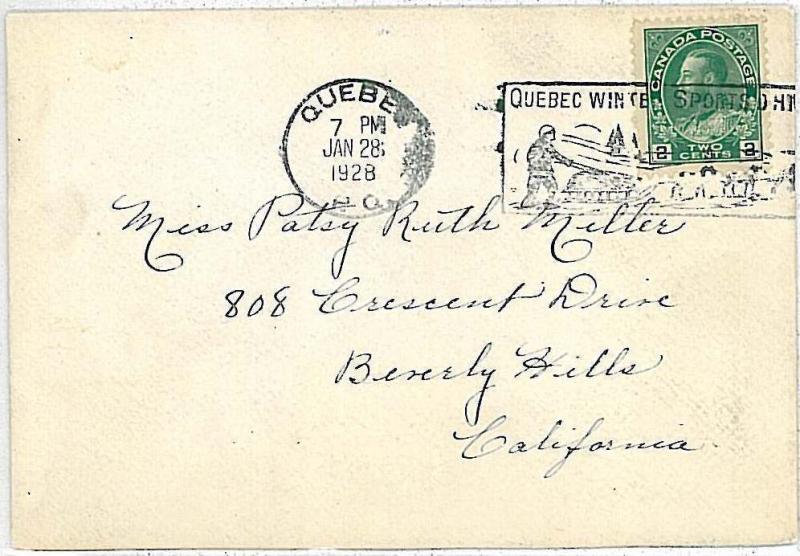 QUEBE
7 PM
JAN 28
1928
P Q
QUEBEC WINTE SPORTS
CANADA POSTAGE
2 TWO CENTS 2
Miss Patsy Ruth Miller
808 Crescent Drive
Beverly Hills
California